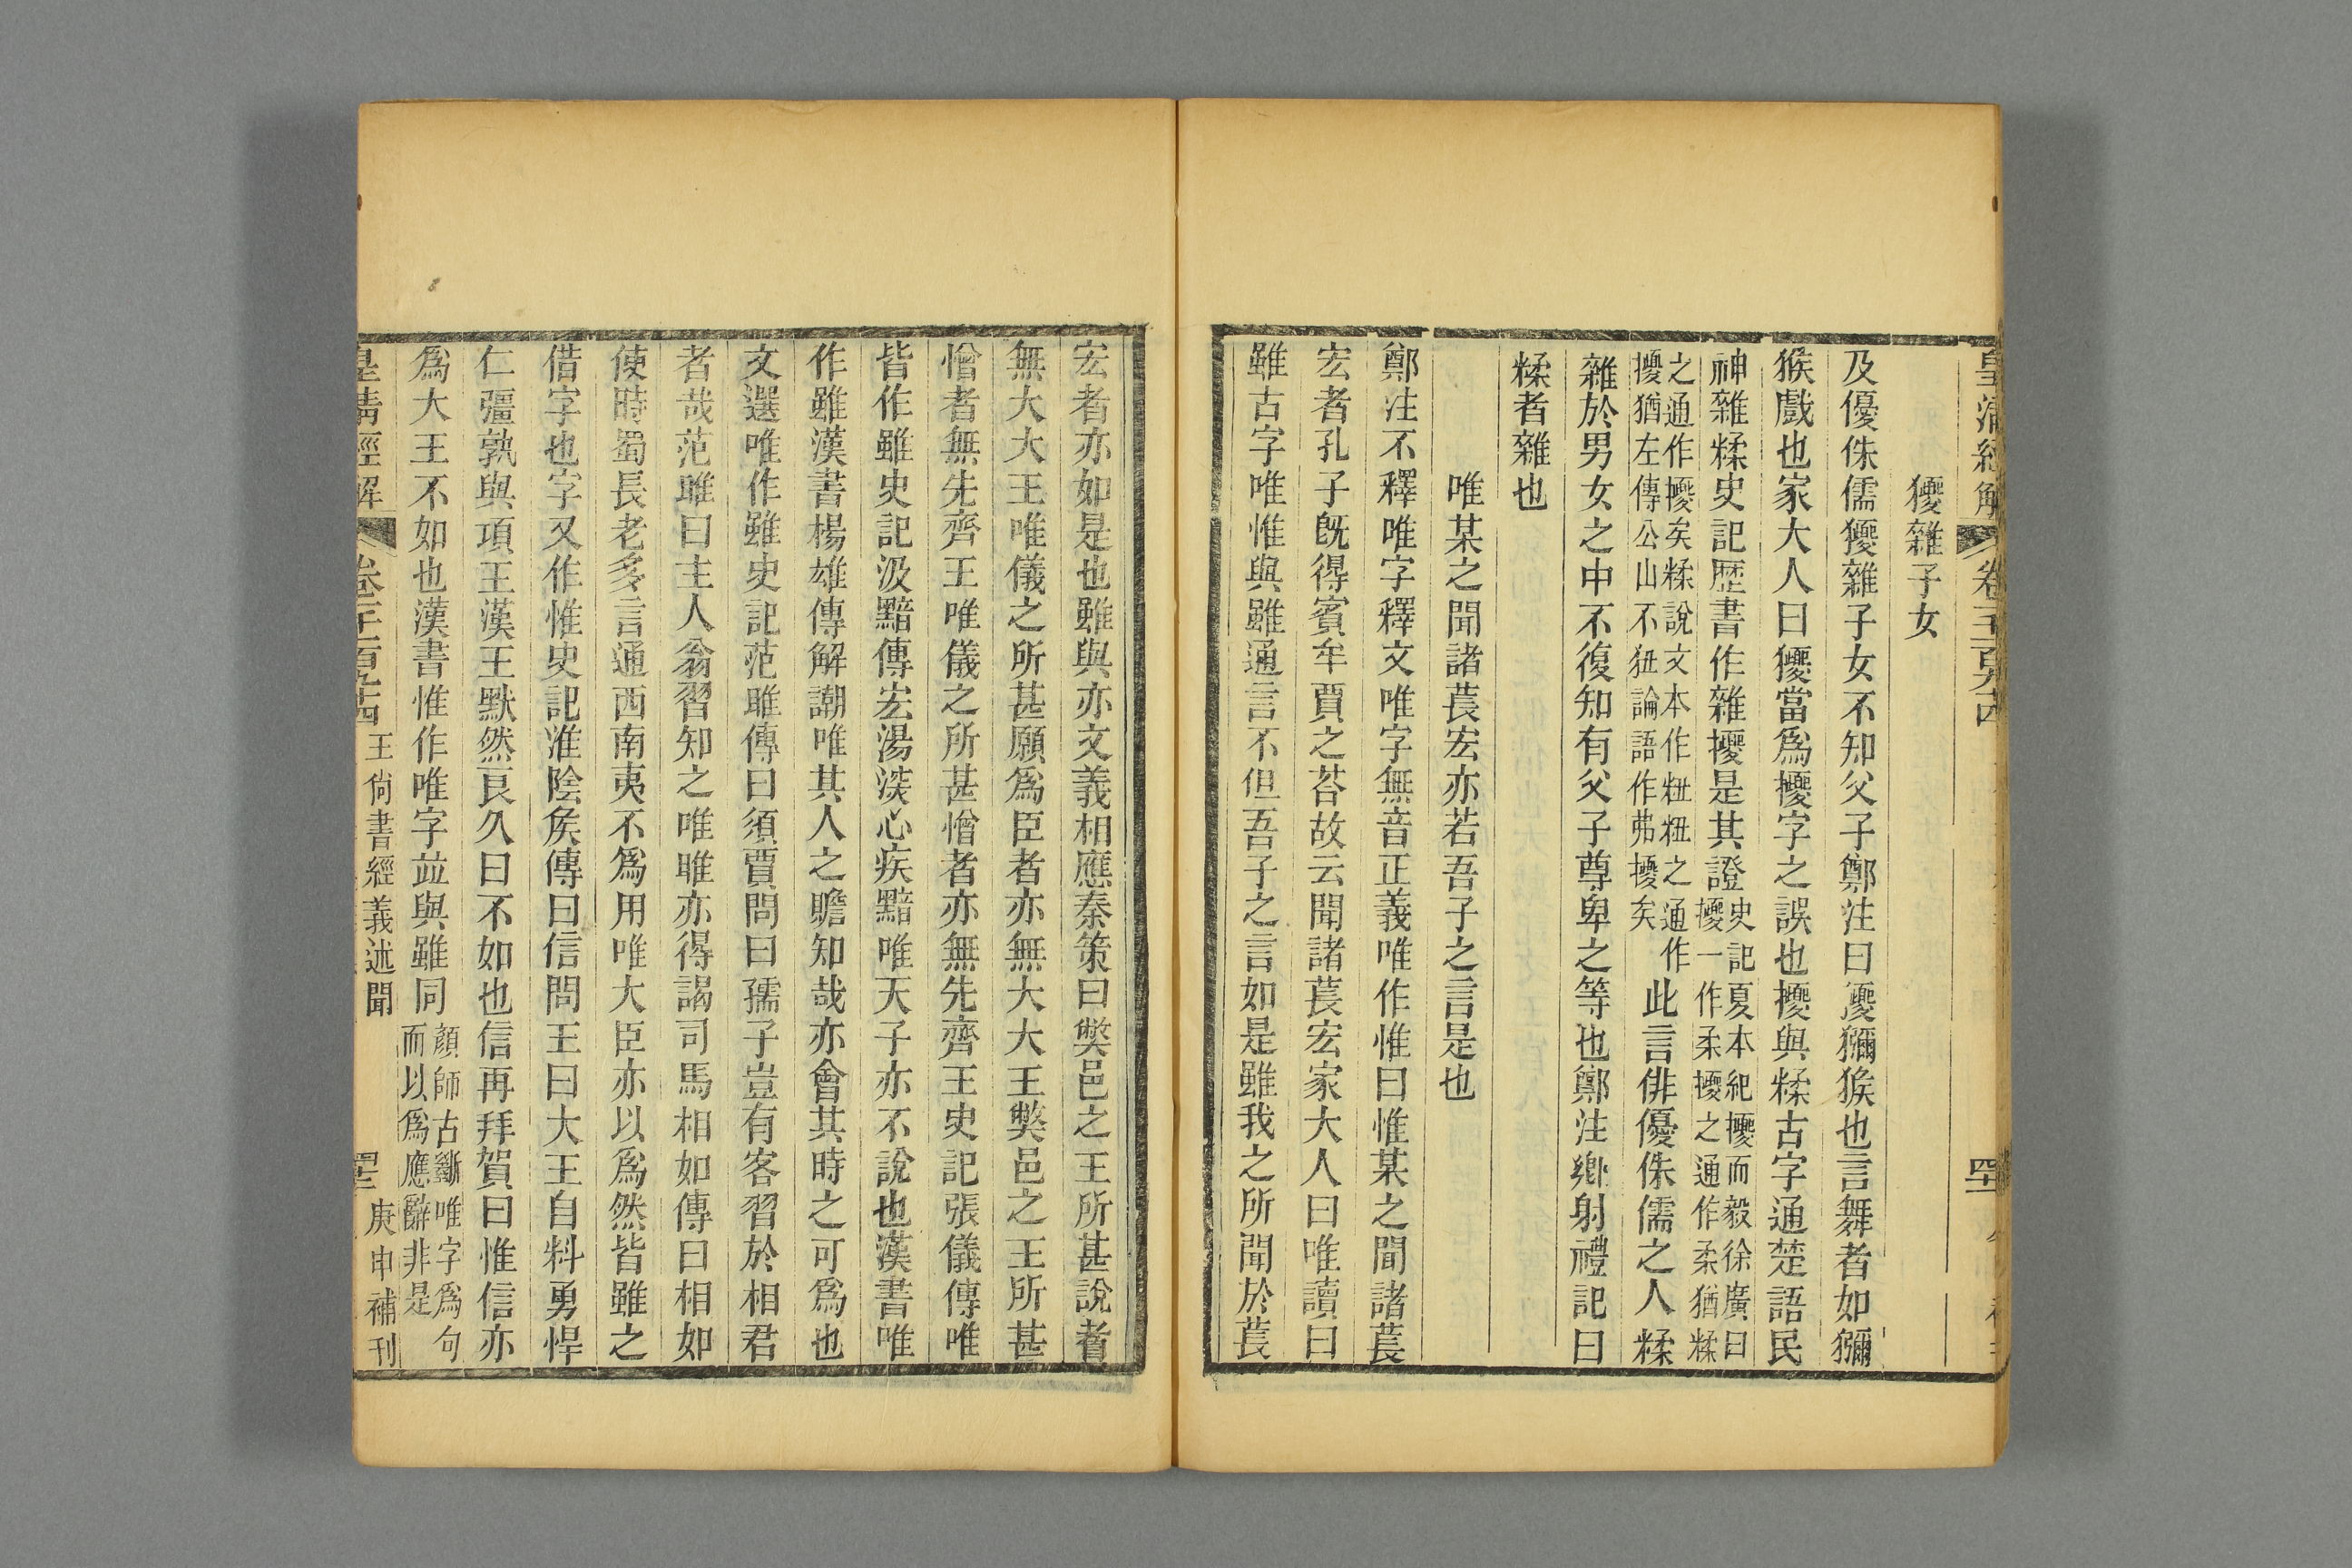 皇清經解 卷千百九十四
獶雜子女
及優侏儒獶雜子女不知父子鄭注曰獶獼猴也言舞者如獼
猴戲也家大人曰獶當爲擾字之誤也擾與糅古字通楚語民
神雜糅史記歷書作雜擾是其證史記夏本紀擾而毅徐廣曰
擾一作柔擾之通作柔猶糅
之通作擾矣糅說文本作粈粈之通作
擾猶左傳公山不狃論語作弗擾矣
此言俳優侏儒之人糅
雜於男女之中不復知有父子尊卑之等也鄭注鄉射禮記曰
糅者雜也
唯某之聞諸萇宏亦若吾子之言是也
鄭注不釋唯字釋文唯字無音正義唯作惟曰惟某之聞諸萇
宏者孔子旣得賓牟賈之荅故云聞諸萇宏家大人曰唯讀曰
雖古字唯惟與雖通言不但吾子之言如是雖我之所聞於萇
宏者亦如是也雖與亦文義相應秦策曰獘邑之王所甚說者
無大大王唯儀之所甚願爲臣者亦無大大王獘邑之王所甚
憎者無先齊王唯儀之所甚憎者亦無先齊王史記張儀傳唯
皆作雖史記汲黯傳宏湯淡心疾黯唯天子亦不說也漢書唯
作雖漢書楊雄傳解潮唯其人之贍知哉亦會其時之可爲也
文選唯作雖史記范雎傳曰須賈問曰孺子豈有客習於相君
者哉范雎曰主人翁習知之唯雎亦得謁司馬相如傳曰相如
使時蜀長老多言通西南夷不爲用唯大臣亦以爲然皆雖之
借字也字又作惟史記淮陰矦傳曰信問王曰大王自料勇悍
仁彊孰與項王漢王默然良久曰不如也信再拜賀曰惟信亦
爲大王不如也漢書惟作唯字竝與雖同
顔師古斷唯字爲句
而以爲應辭非是
皇清經解 卷千百九十四 王尙書經義述聞 庚申補刊